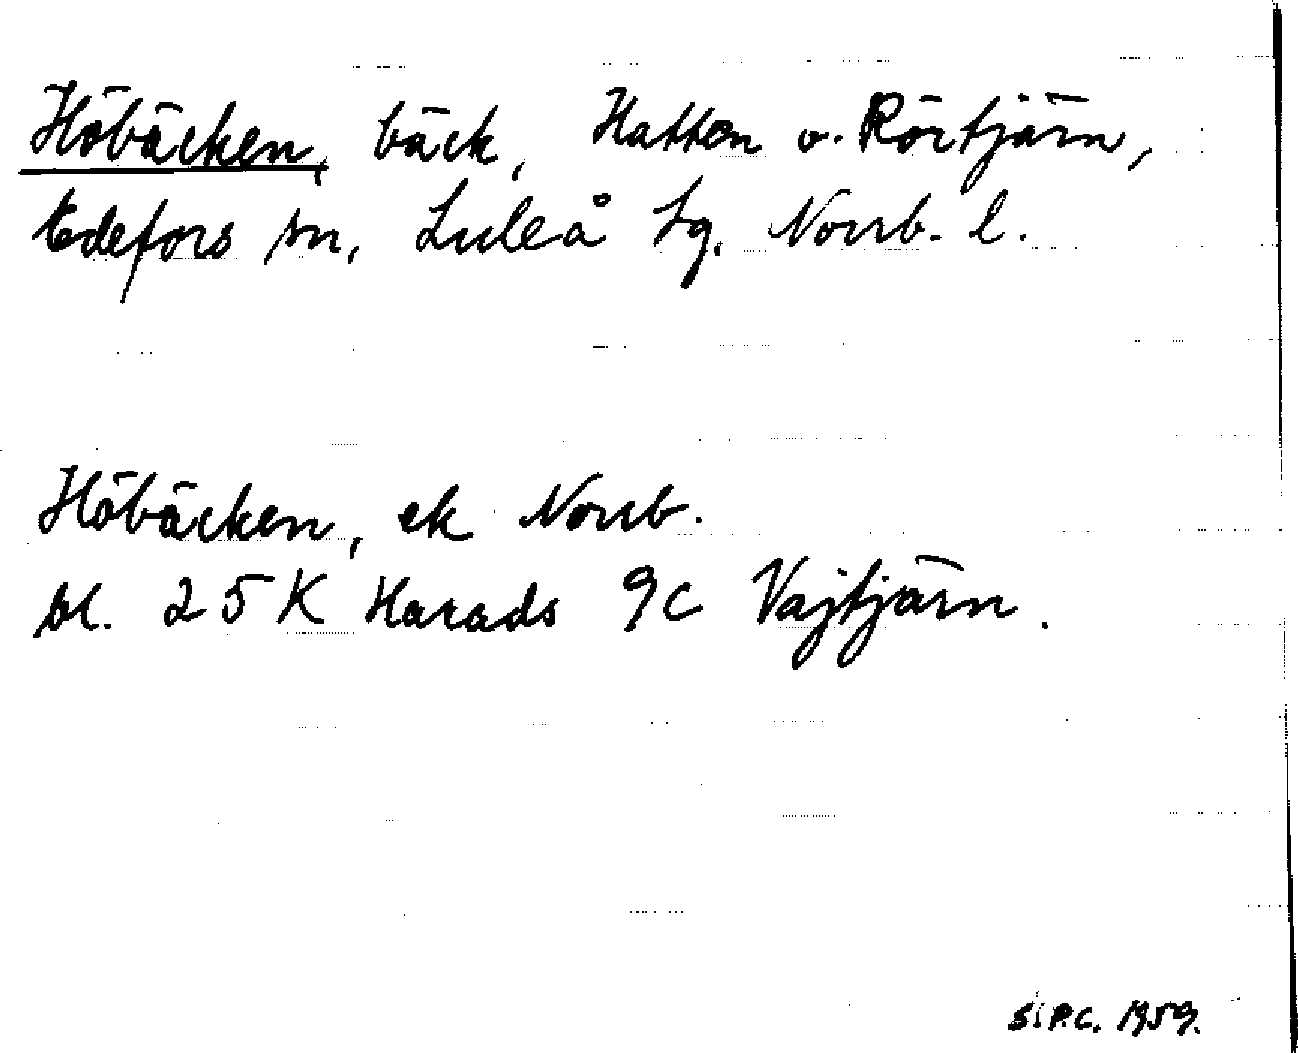 Höbäcken, bäck, Hatten o. Rörtjärn,
Edefors sn, Luleå tg. Norrb. l.
Höbäcken, ek Norrb.
bl. 25 K Harads 9c Vajtjärn.
S.P.C. 1959.